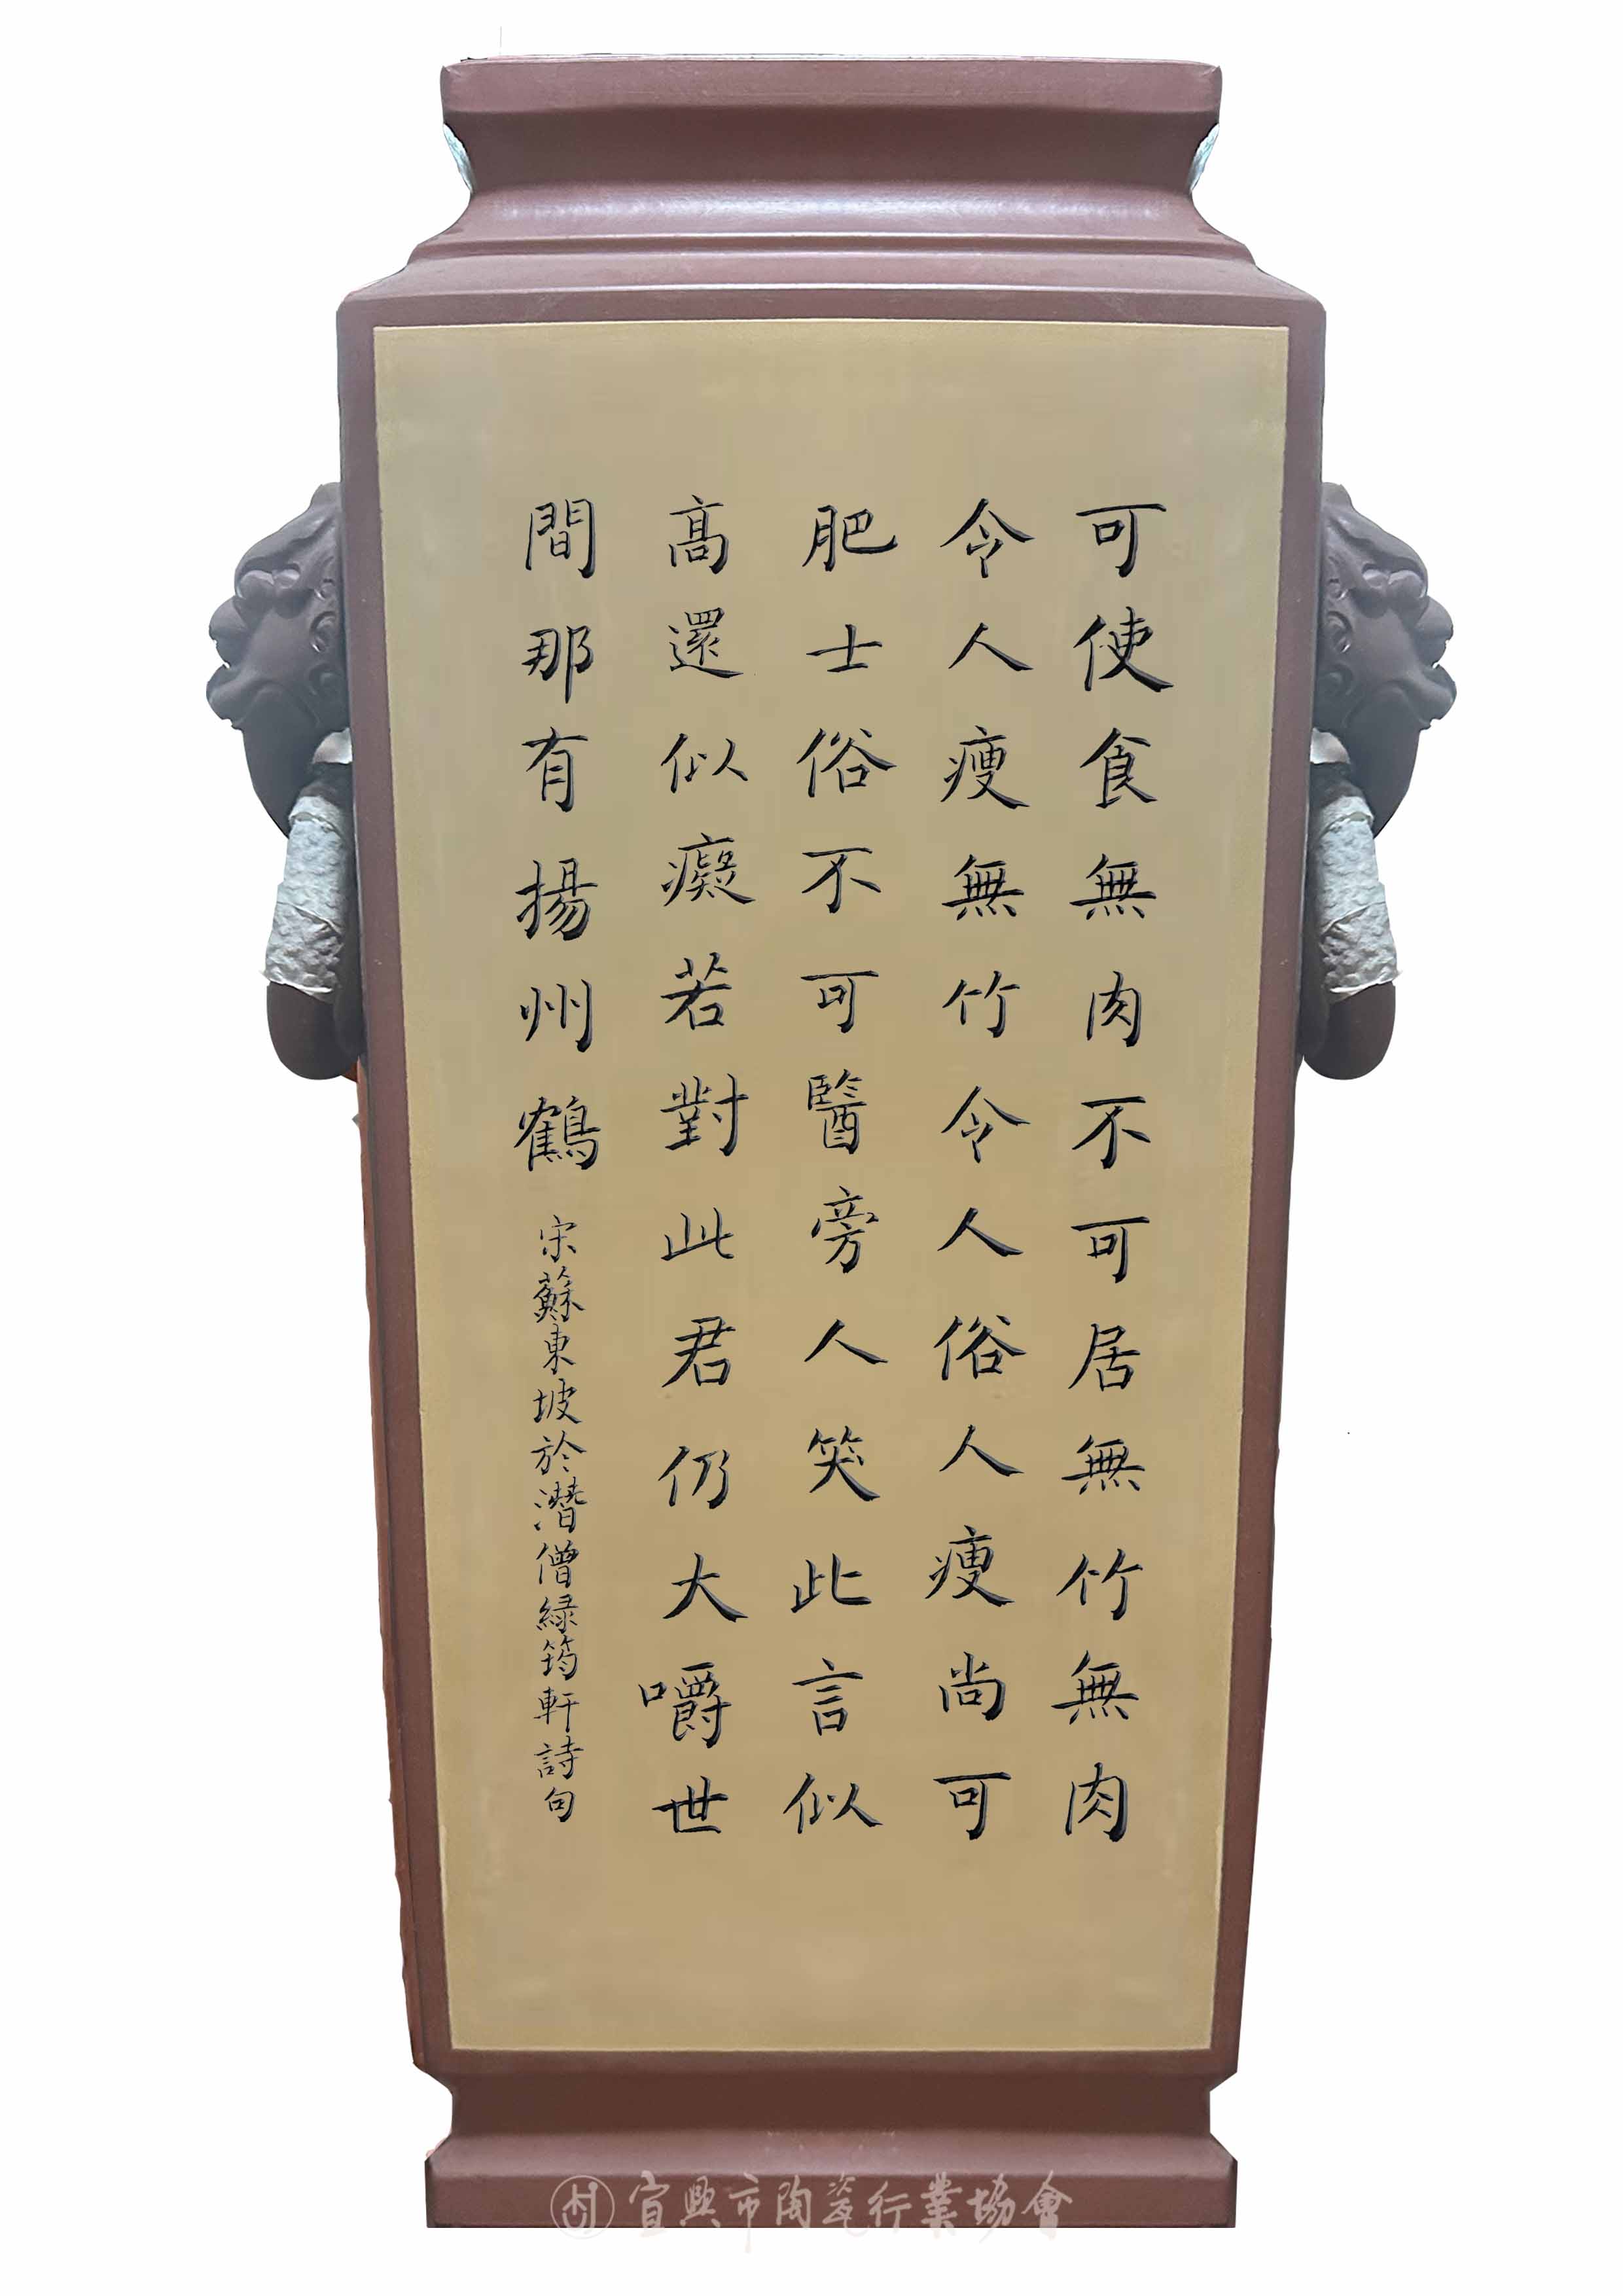 可使食無肉不可居無竹無肉
令人瘦無竹令人俗人瘦尚可
肥士俗不可醫旁人笑此言似
高還似癡若對此君仍大嚼世
間那有揚州鶴
宋蘇東坡於潛僧緑筠軒詩句
宜興市陶瓷行業協會